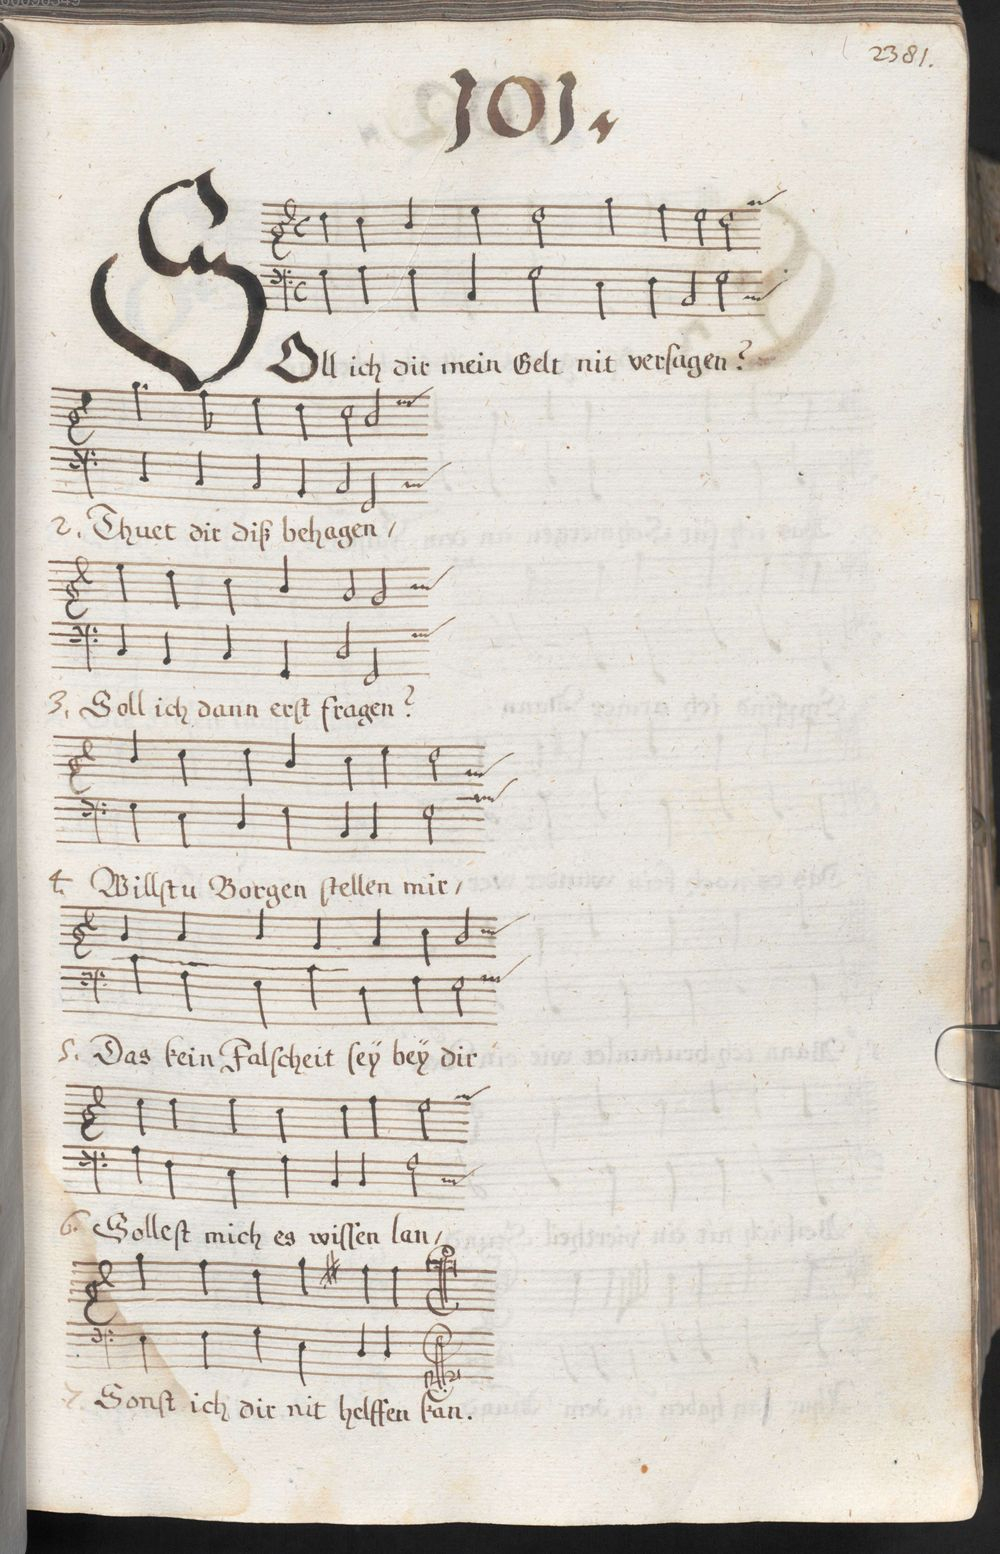 2381.
101.
SOll ich dir mein Gelt nit versagen?
2. Thuet dir diß behagen,
3. Soll ich dann erst fragen?
4. Willstu Borgen stellen mir,
5. Das kein Falscheit seÿ beÿ dir
6. Sollest mich es wissen lan,
7. Sonst ich dir nit helffen kan.